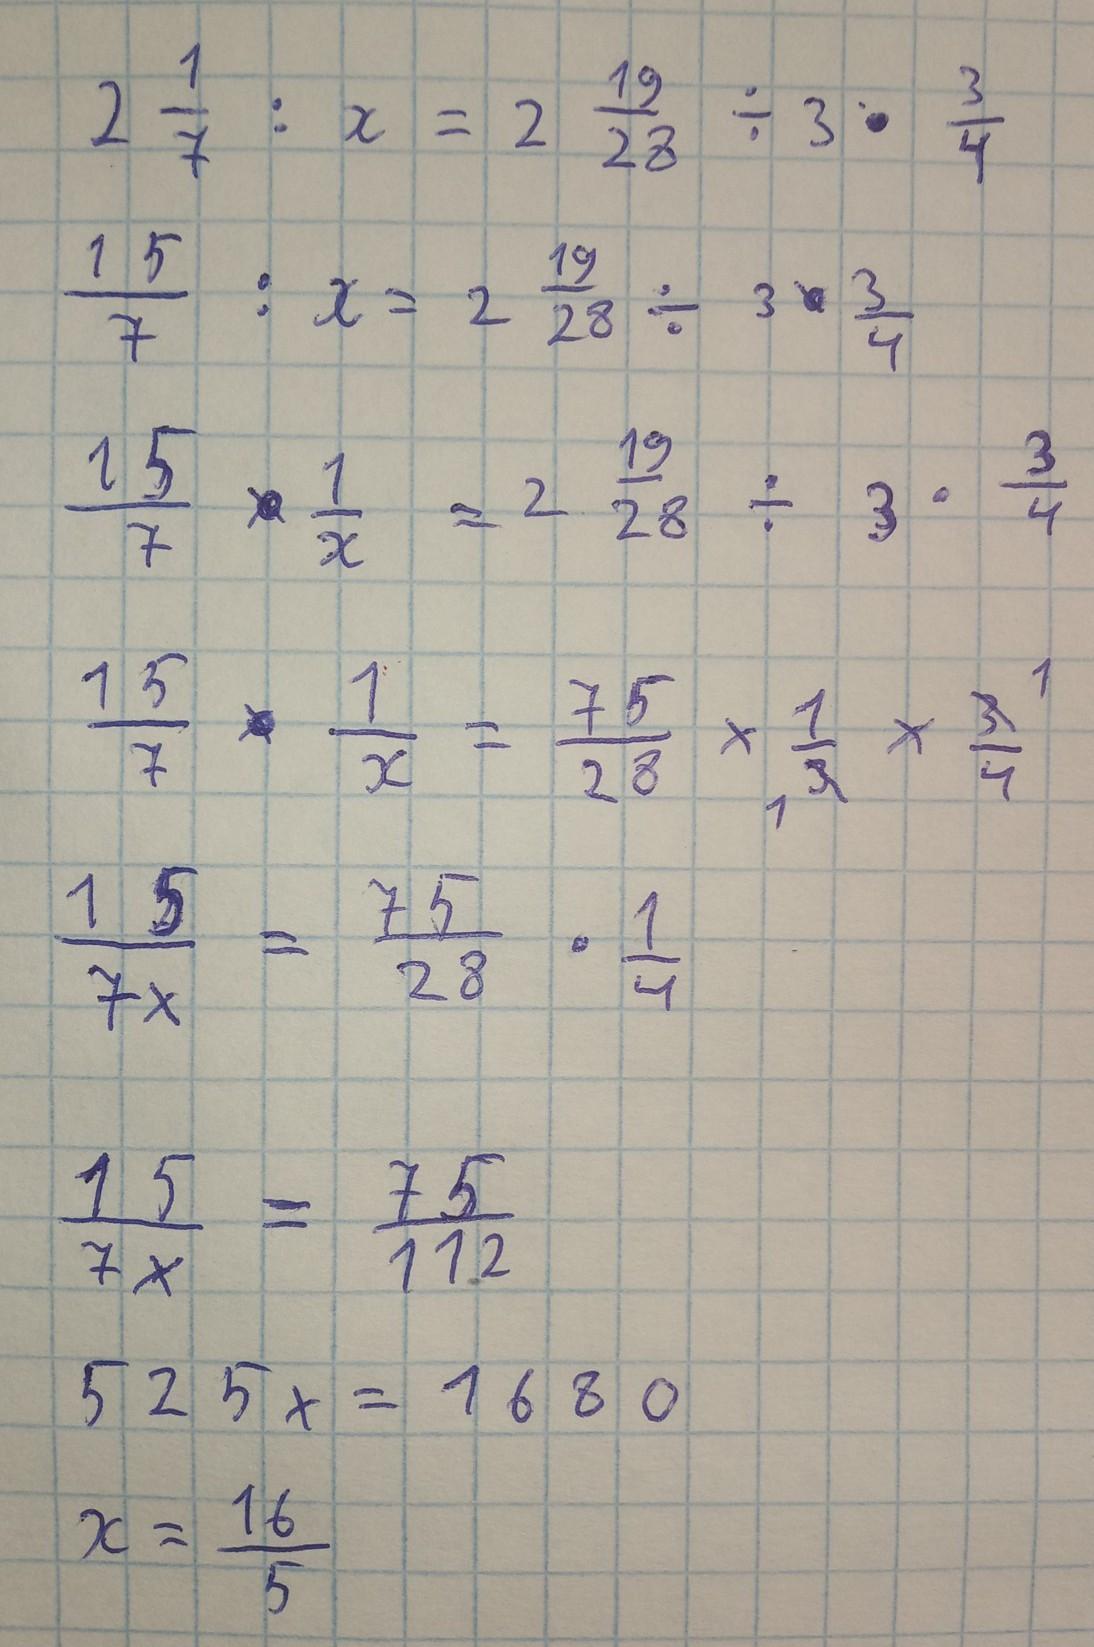 2 1/7 : x = 2 19/28 ÷ 3 • 3/4
15/7 : x = 2 19/28 ÷ 3 • 3/4
15/7 • 1/x = 2 19/28 ÷ 3 · 3/4
15/7 • 1/x = 75/28 × 1/3 1 × 3/4 1
15/7x = 75/28 · 1/4
15/7x = 75/112
525x = 1680
x = 16/5